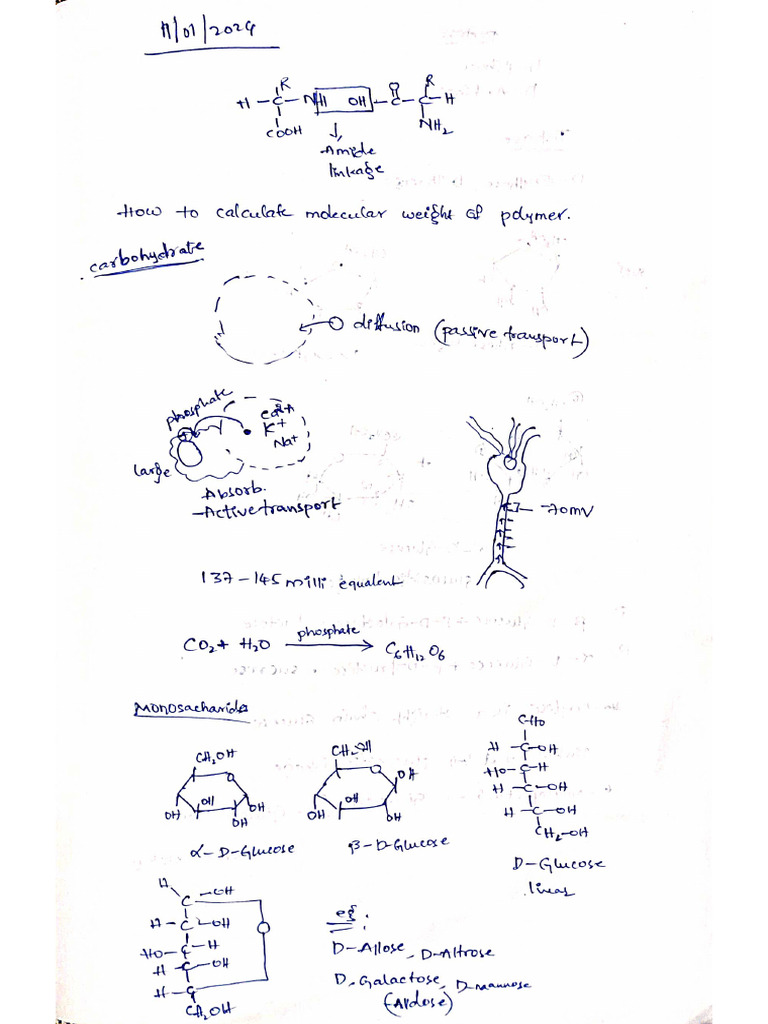 11/01/2024
R O R
H-C-NH OH-C-C-H
COOH NH2
Amide
linkage
How to calculate molecular weight of polymer.
carbohydrate
diffusion (passive transport)
phosphate
Ca2+
K+
Na+
large
Absorb.
-Active transport
-70mV
137-145 milli equalent
CO2+ H2O phosphate C6H12O6
Monosacharide
CH2OH
O
OH OH OH
OH
α-D-Glucose
CH2OH
O OH
OH OH
OH
β-D-Glucose
CHO
H-C-OH
HO-C-H
H-C-OH
H-C-OH
CH2-OH
D-Glucose
linear
H C -OH
H-C-OH
HO-C-H
H-C-OH
H-C
CH2OH
O
eg:
D-Allose, D-Altrose
D-Galactose, D-mannose
(Aldose)